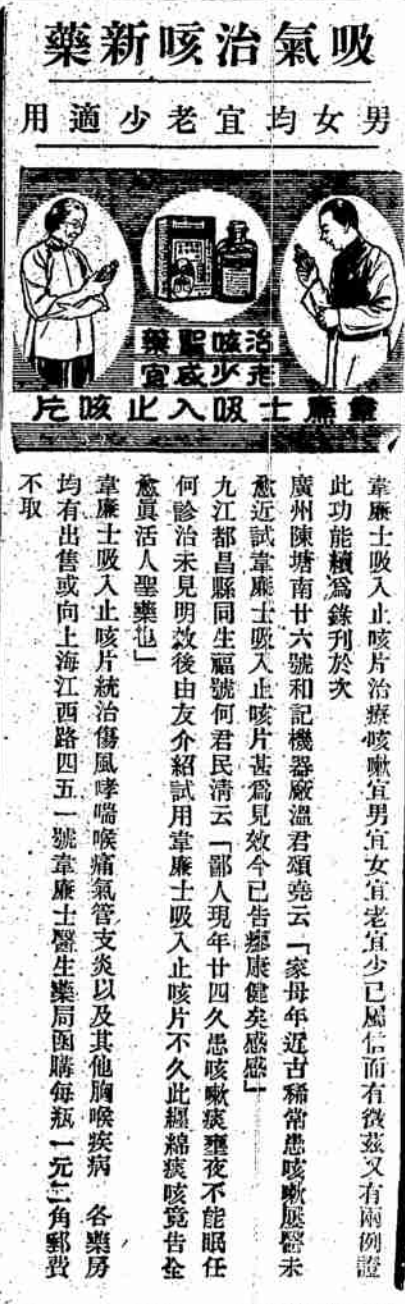 吸氣治咳新藥
男女均宜老少適用
治咳聖藥
老少咸宜
韋廉士吸入止咳片
韋廉士吸入止咳片治療咳嗽宜男宜女宜老宜少已屬信而有徵茲又有兩例證
此功能續爲錄刊於次
廣州陳塘南廿六號和記機器廠溫君頌堯云「家母年近古稀常患咳嗽屢醫未
愈近試韋廉士吸入止咳片甚爲見效今已告痊康健矣感感」
九江都昌縣同生福號何君民清云「鄙人現年廿四久患咳嗽痰壅夜不能眠任
何診治未見明效後由友介紹試用韋廉士吸入止咳片不久此纒綿痰咳竟告全
愈眞活人聖藥也」
韋廉士吸入止咳片統治傷風哮喘喉痛氣管支炎以及其他胸喉疾病 各藥房
均有出售或向上海江西路四五一號韋廉士醫生藥局函購每瓶一元二角郵費
不取